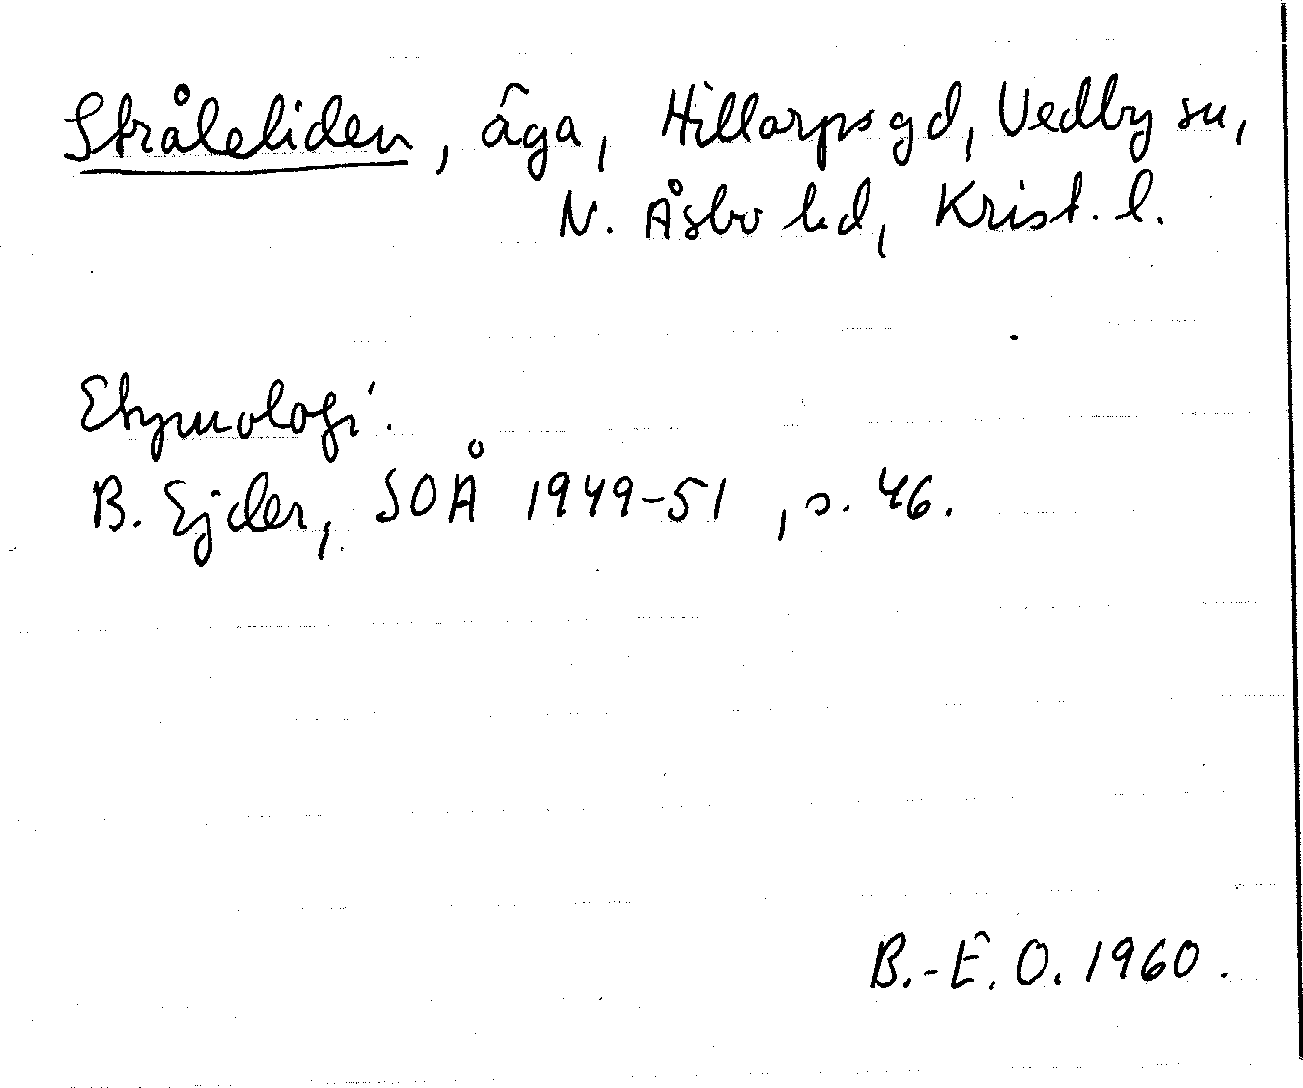 Stråleliden, äga, Hillarpsgd, Vedby sn,
N. Åsbo hd, Krist. l.
Etymologi.
B. Ejder, SOÅ 1949-51, s. 46.
B.-E. O. 1960.